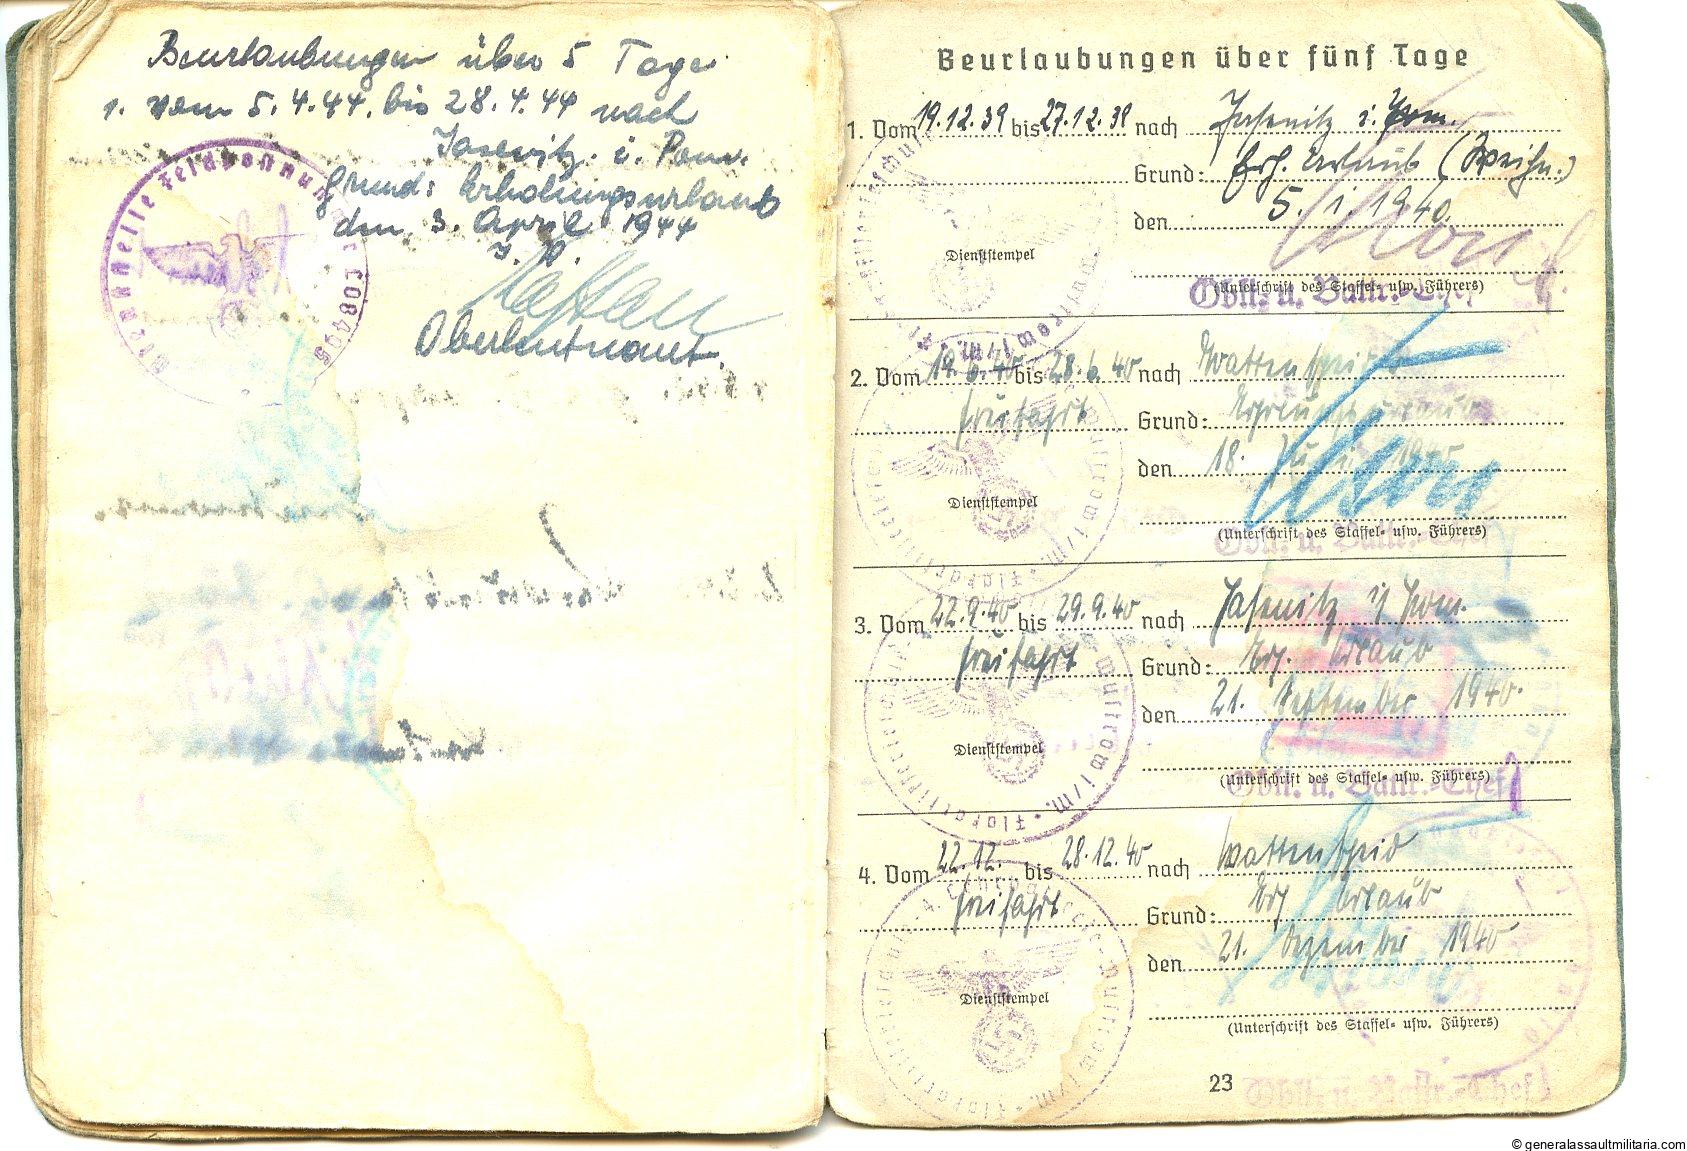 Beurlaubungen über 5 Tage
1. vom 5.4.44. bis 28.4.44 nach
Jasenitz. i. Pom.
Grund: Erholungsurlaub
den 3. April 1944
Oberleutnant.
Beurlaubungen über fünf Tage
1. Vom 19.12.39 bis 27.12.39 nach Jasenitz i. Pom.
Grund: Erh. Urlaub (Weihn.)
den 5. 1. 1940.
Dienststempel
(Unterschrift des Staffel- usw. Führers)
Oblt. u. Battr.-Chef
2. Vom 19.6.40 bis 28.6.40 nach Wattenscheid
Freifahrt Grund: Erholungsurlaub
den 18. Juni 1940
Dienststempel
(Unterschrift des Staffel- usw. Führers)
Oblt. u. Battr.-Chef
3. Vom 22.9.40 bis 29.9.40 nach Jasenitz i/Pom.
Freifahrt Grund: Erh. Urlaub
den 21. September 1940.
Dienststempel
(Unterschrift des Staffel- usw. Führers)
Oblt. u. Battr.-Chef
4. Vom 22.12. bis 28.12.40 nach Wattenscheid
Freifahrt Grund: Erh Urlaub
den 21. Dezember 1940
Dienststempel
(Unterschrift des Staffel- usw. Führers)
23
Oblt. u. Battr.-Chef
© generalassaultmilitaria.com